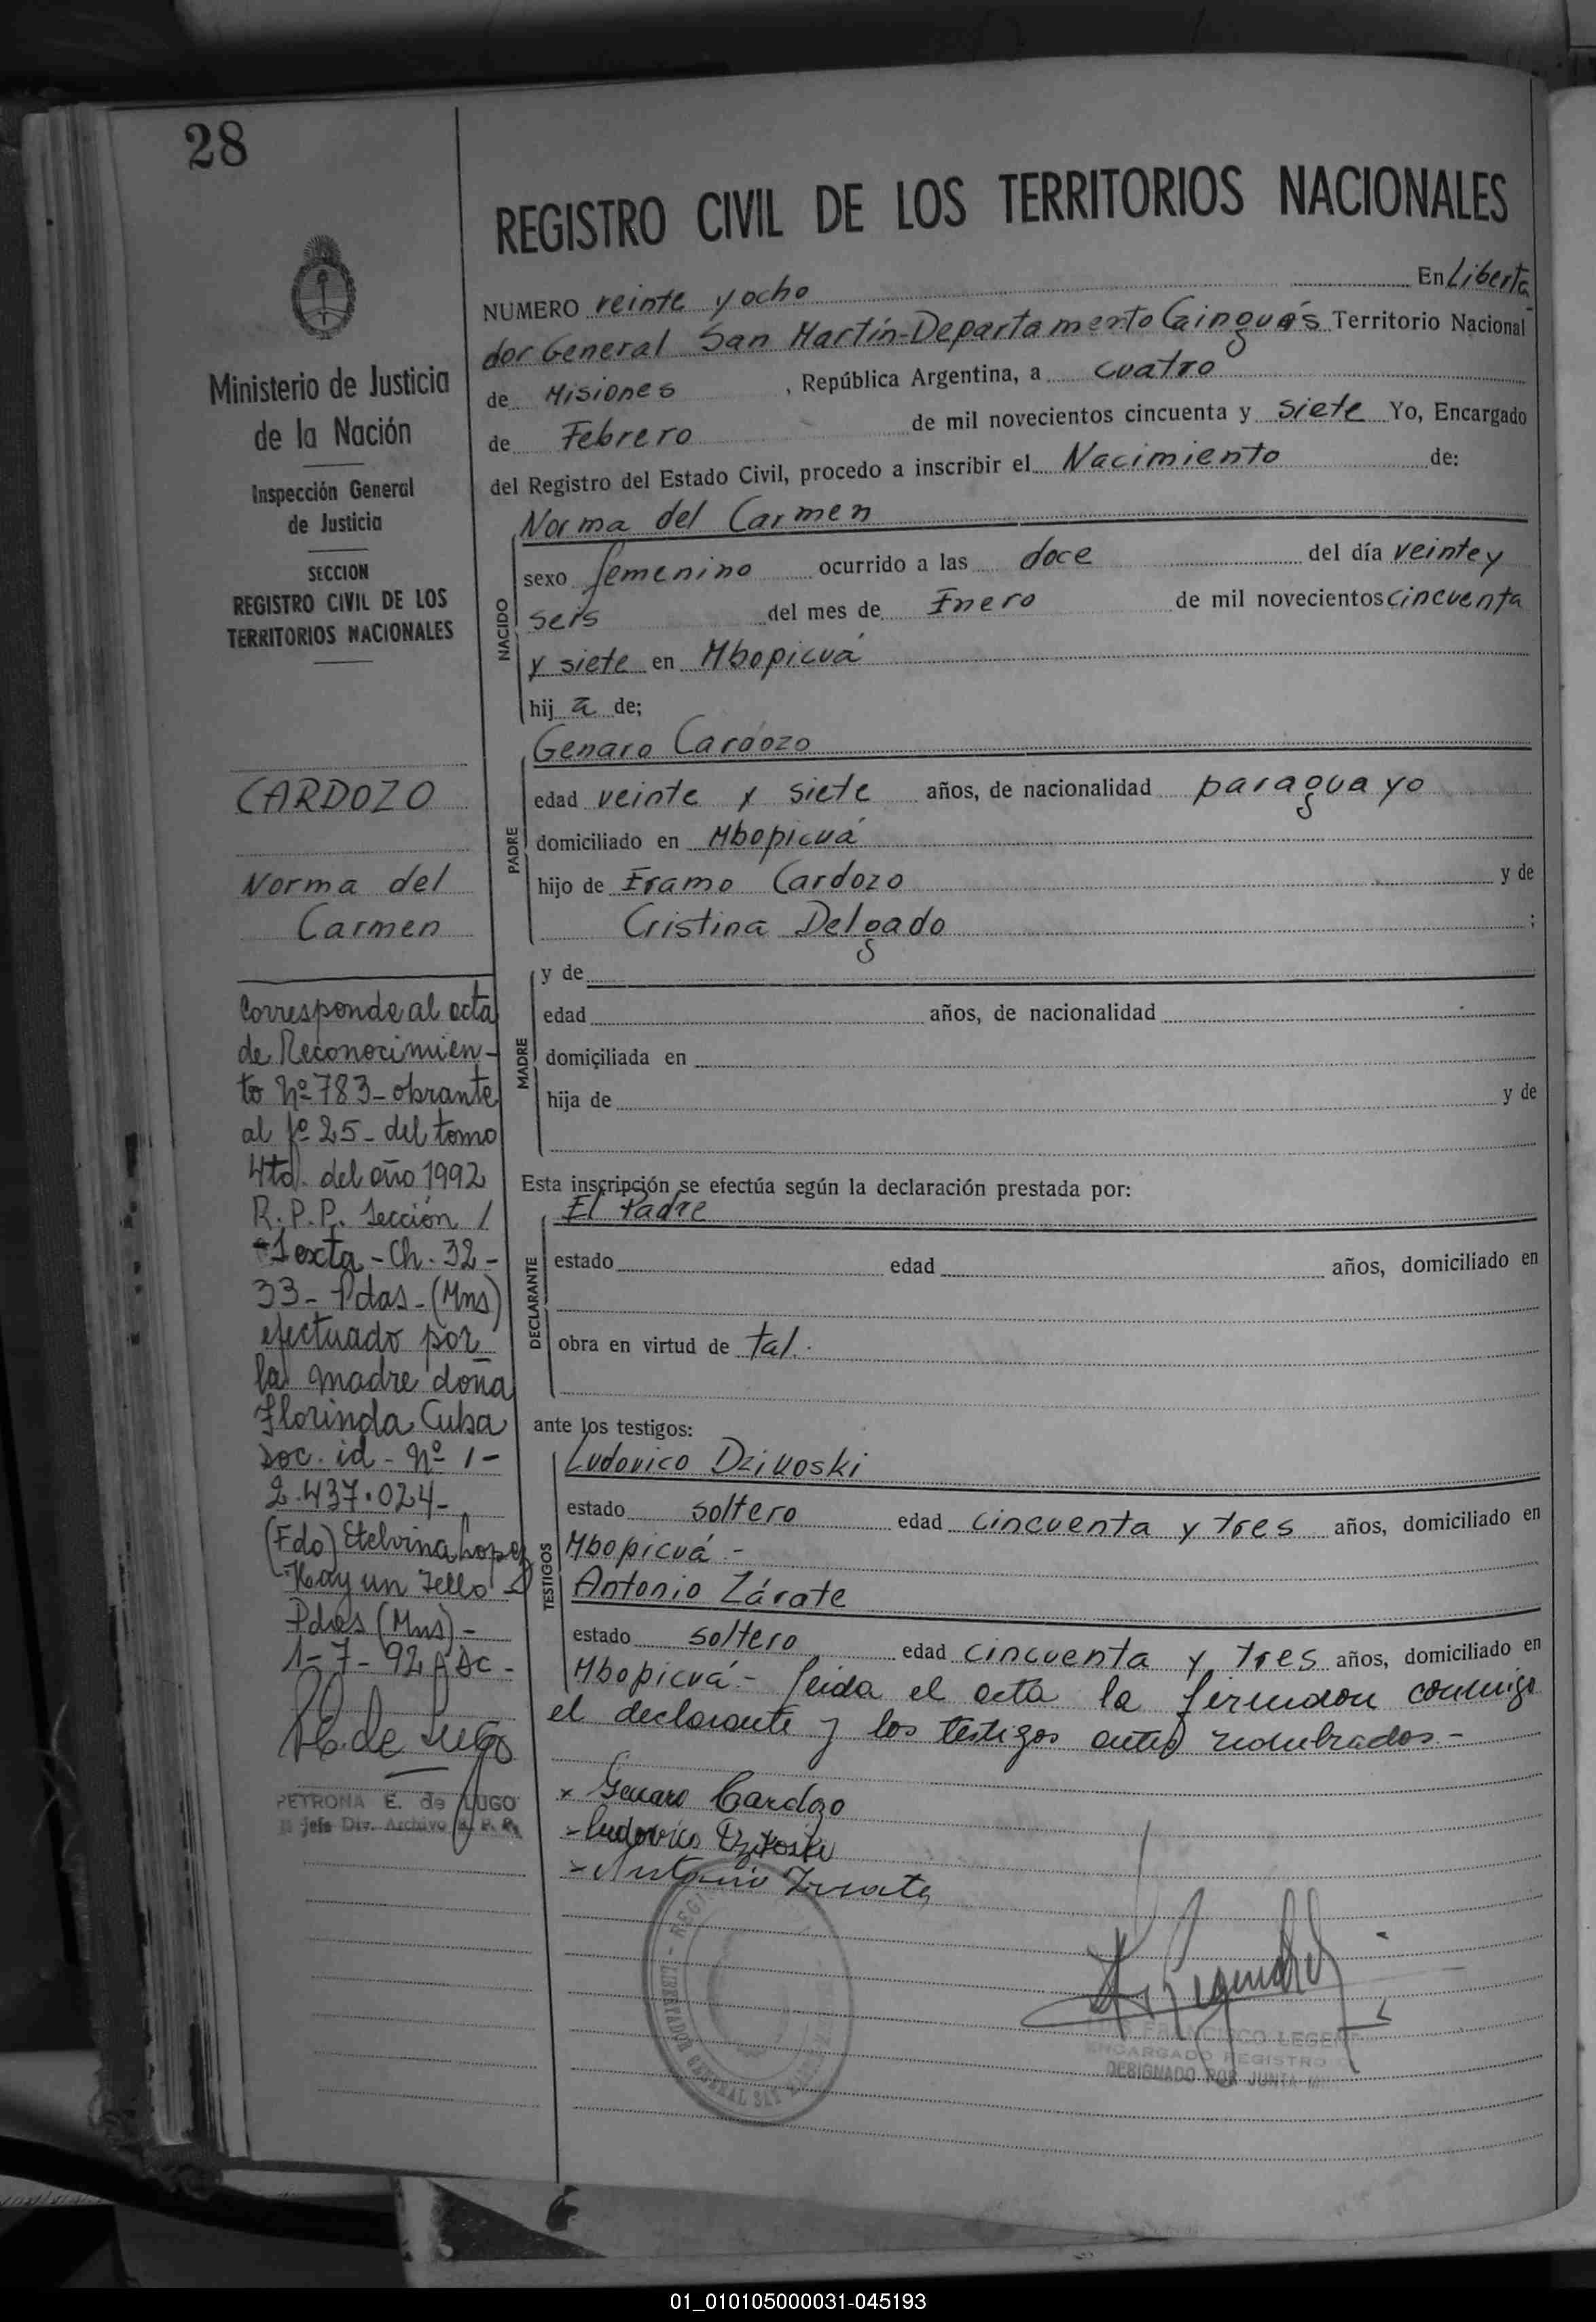 28
Ministerio de Justicia
de la Nación
Inspección General
de Justicia
SECCION
REGISTRO CIVIL DE LOS
TERRITORIOS NACIONALES
CARDOZO
Norma del
Carmen
Corresponde al acta
de Reconocimien-
to Nº 783- obrante
al fº 25- del tomo
4to. del año 1992
R.P.P. Sección /
Sexta - Ch. 32-
33- Pdas- (Mns)
efectuado por
la madre doña
Florinda Cuba
Doc. id- Nº 1-
2.437.024-
(Fdo) Etelvina Lopez
Hay un sello -
Pdas (Mns)-
1-7-92
de Lugo
PETRONA E. de LUGO
Jefe Div. Archivo R. P. P.
REGISTRO CIVIL DE LOS TERRITORIOS NACIONALES
NUMERO veinte y ocho En Liberta
dor General San Martín-Departamento Cainguás Territorio Nacional
de Misiones, República Argentina, a cuatro
de Febrero de mil novecientos cincuenta y siete Yo, Encargado
del Registro del Estado Civil, procedo a inscribir el Nacimiento de:
NACIDO
Norma del Carmen
sexo femenino ocurrido a las doce del día veinte y
seis del mes de Enero de mil novecientos cincuenta
y siete en Mbopicuá
hij a de;
PADRE
Genaro Cardozo
edad veinte y siete años, de nacionalidad paraguayo
domiciliado en Mbopicuá
hijo de Eramo Cardozo y de
Cristina Delgado ;
MADRE
y de
edad años, de nacionalidad
domiciliada en
hija de y de
Esta inscripción se efectúa según la declaración prestada por:
DECLARANTE
El Padre
estado edad años, domiciliado en
obra en virtud de tal.
ante los testigos:
TESTIGOS
Ludovico Dzikoski
estado soltero edad cincuenta y tres años, domiciliado en
Mbopicuá.-
Antonio Zárate
estado soltero edad cincuenta y tres años, domiciliado en
Mbopicuá.- Leida el acta la firmaron conmigo
el declarante y los testigos antes nombrados.-
x Genaro Cardozo
- Ludovico Dzikoski
- Antonio Zarate
LIBERTADOR GENERAL SAN
FRANCISCO
ENCARGADO REGISTRO
DESIGNADO POR JUNTA
01_010105000031-045193